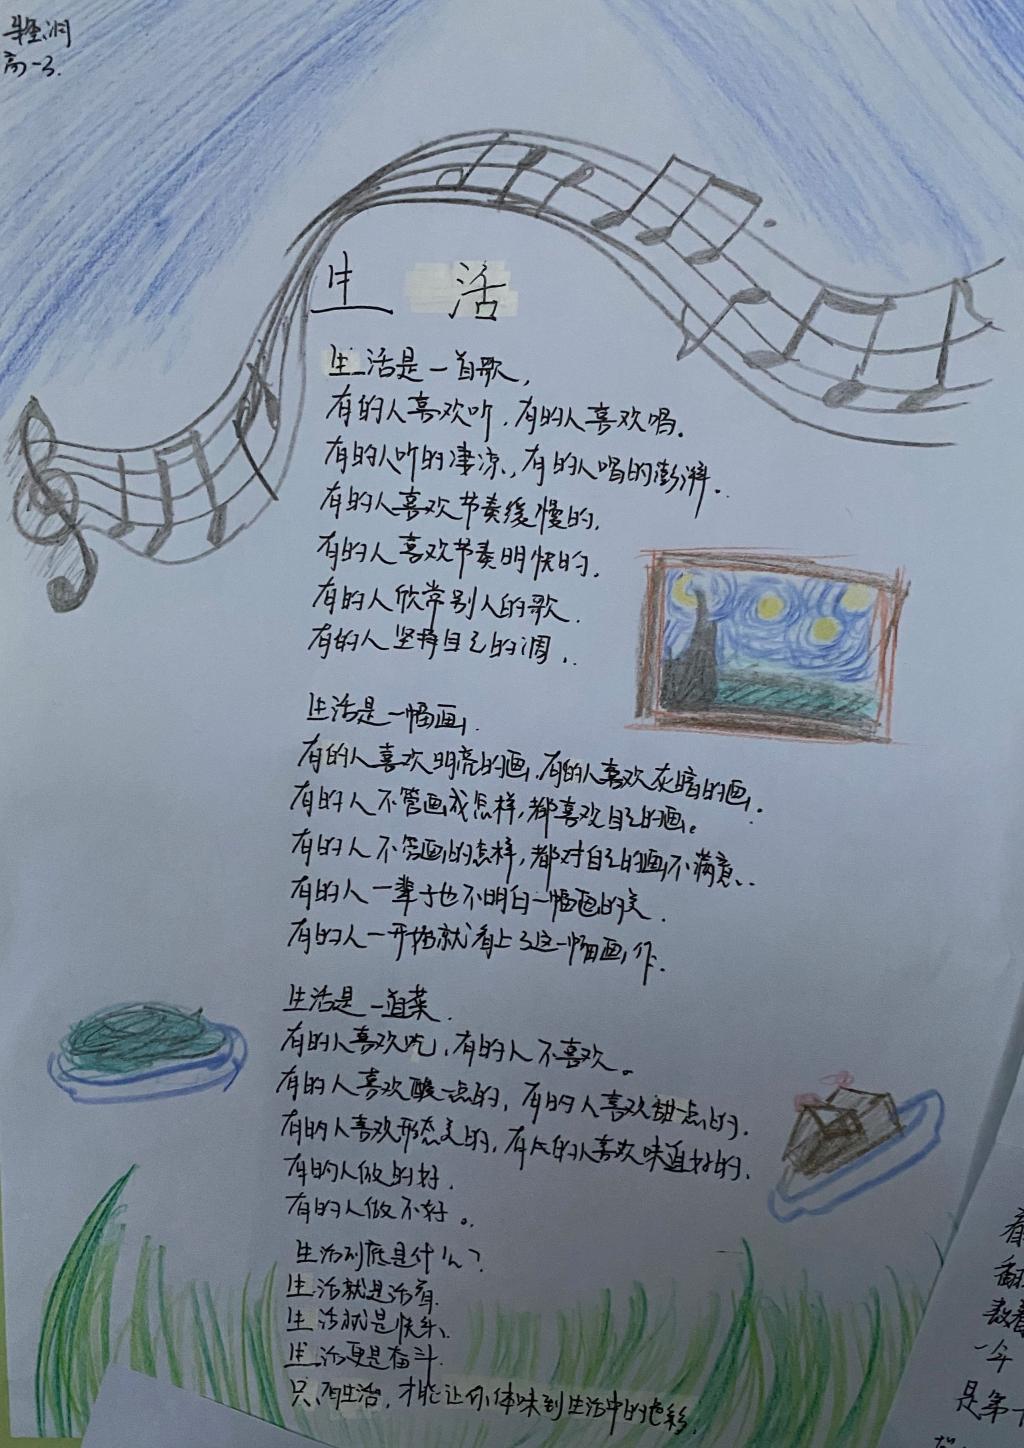 高一3.
生 活
生活是一首歌，
有的人喜欢听，有的人喜欢唱。
有的人听的凄凉，有的人唱的澎湃。
有的人喜欢节奏缓慢的，
有的人喜欢节奏明快的，
有的人欣常别人的歌，
有的人坚持自己的调，
生活是一幅画，
有的人喜欢明亮的画，有的人喜欢灰暗的画，
有的人不管画成怎样，都喜欢自己的画。
有的人不管画的怎样，都对自己的画不满意、
有的人一辈子也不明白一幅画的美，
有的人一开始就看上了这一幅画作，
生活是一道菜，
有的人喜欢吃，有的人不喜欢。
有的人喜欢酸一点的，有的人喜欢甜一点的，
有的人喜欢形态美的，有的人喜欢味道好的，
有的人做的好，
有的人做不好。
生活到底是什么？
生活就是活着，
生活就是快乐，
生活更是奋斗，
只有生活，才能让你体味到生活中的色彩，
看
翻
教着
一年
是第一